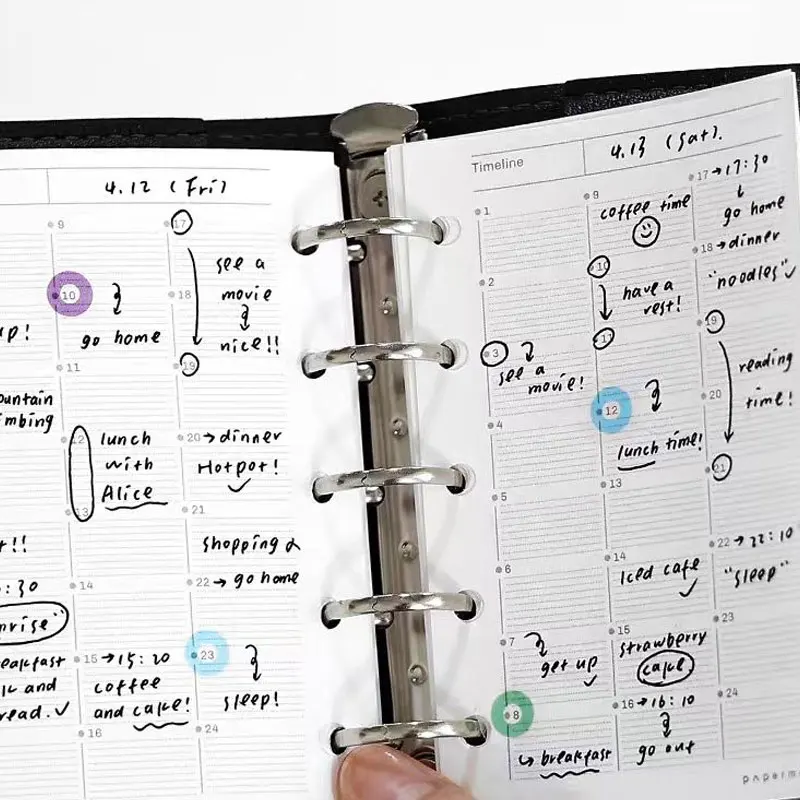 4.12 (Fri)
9
10
go home
11
mountain
climbing
12
lunch
with
Alice
13
14
15 → 15:20
coffee
and cake!
16
17
see a
movie
nice!!
18
19
20 → dinner
Hotpot!
21
shopping &
22 → go home
23
sleep!
24
Timeline
4.13 (Sat).
1
2
3
see a
movie!
4
5
6
7
get up
8
↳ breakfast
9
coffee time
10
have a
rest!
11
12
lunch time!
13
14
Iced cafe
15
strawberry
cake
16 → 16:10
go out
17 → 17:30
go home
18 → dinner
"noodles"
19
reading
time!
20
21
22 → 22:10
"sleep"
23
24